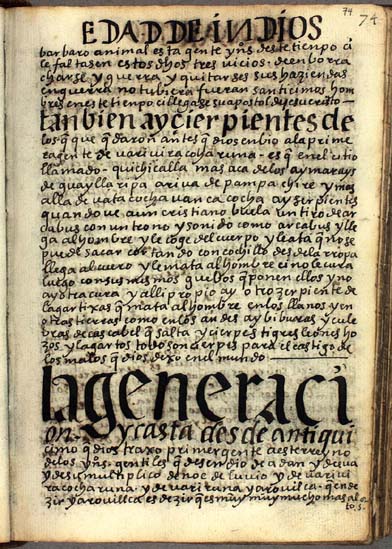 74
74
EDAD DE INDIOS
barbaro animal esta gente yn̄s deste tienpo ci
le faltasen estos dhos tres vicios: de enborra
charse y guerra y quitarse sus haziendas
en guerra no tubiera fueran santicimos hom
bres en este tienpo ci llegase su apostol de jesucristo
tanbien ay cierpientes de
los que quedaron antes q̄ dios enbio a la prime
ra gente de vari vira cocha runa - es q̄ en el citio
llamado - quichicalla mas aca de los aymarays
de guaylla ripa arriua de pampa chire y mas
alla de vata cocha uanca cocha ay serpientes
quando ue a un cristiano buela un tiro de ar
cabus con un trono y sonido como arcabus y lle
ga al hombre y le coge del cuerpo y le ata q̄ no se
puede sacar cortando con cochillo desde la rropa
llega al uero y le mata al hombre ci no le cura
luego con sus mismos guesos q̄ ponen ellos y no
ay otra cura y alli propio ay otro zerpiente de
lagartixas q̄ mata al hombre en los llanos y en
otras tierras como en los andes ay biburas y cule
bras de cascabel q̄ salta y cierpes tigres leones ho
zos y lagartos todo son cierpes para el castigo de
los malos q̄ dios dexo en el mundo
la generaci
on y casta desde antiqui
cimo q̄ dios traxo primer gente a este rreyno
de los yn̄s gentiles q̄ desendio de adan y de eua
y de su multiplico de noe diluuio y de uari ui
ra cocha runa y de uari runa yarouilca - quen de
zir yarouilca es dezir q̄ es muy muy mucho mas al
to. s.